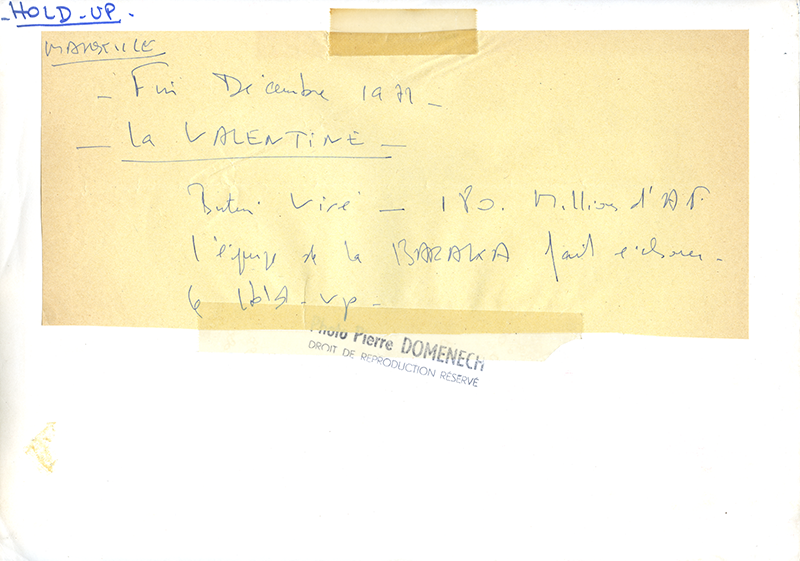 - HOLD-UP -
MARSEILLE
- Fin Décembre 1971 -
- La VALENTINE -
Butin Visé - 180. Millions d'AF.
l'équipe de la BARAKA fait échouer -
le Hold-up -
Photo Pierre DOMENECH
DROIT DE REPRODUCTION RÉSERVÉ